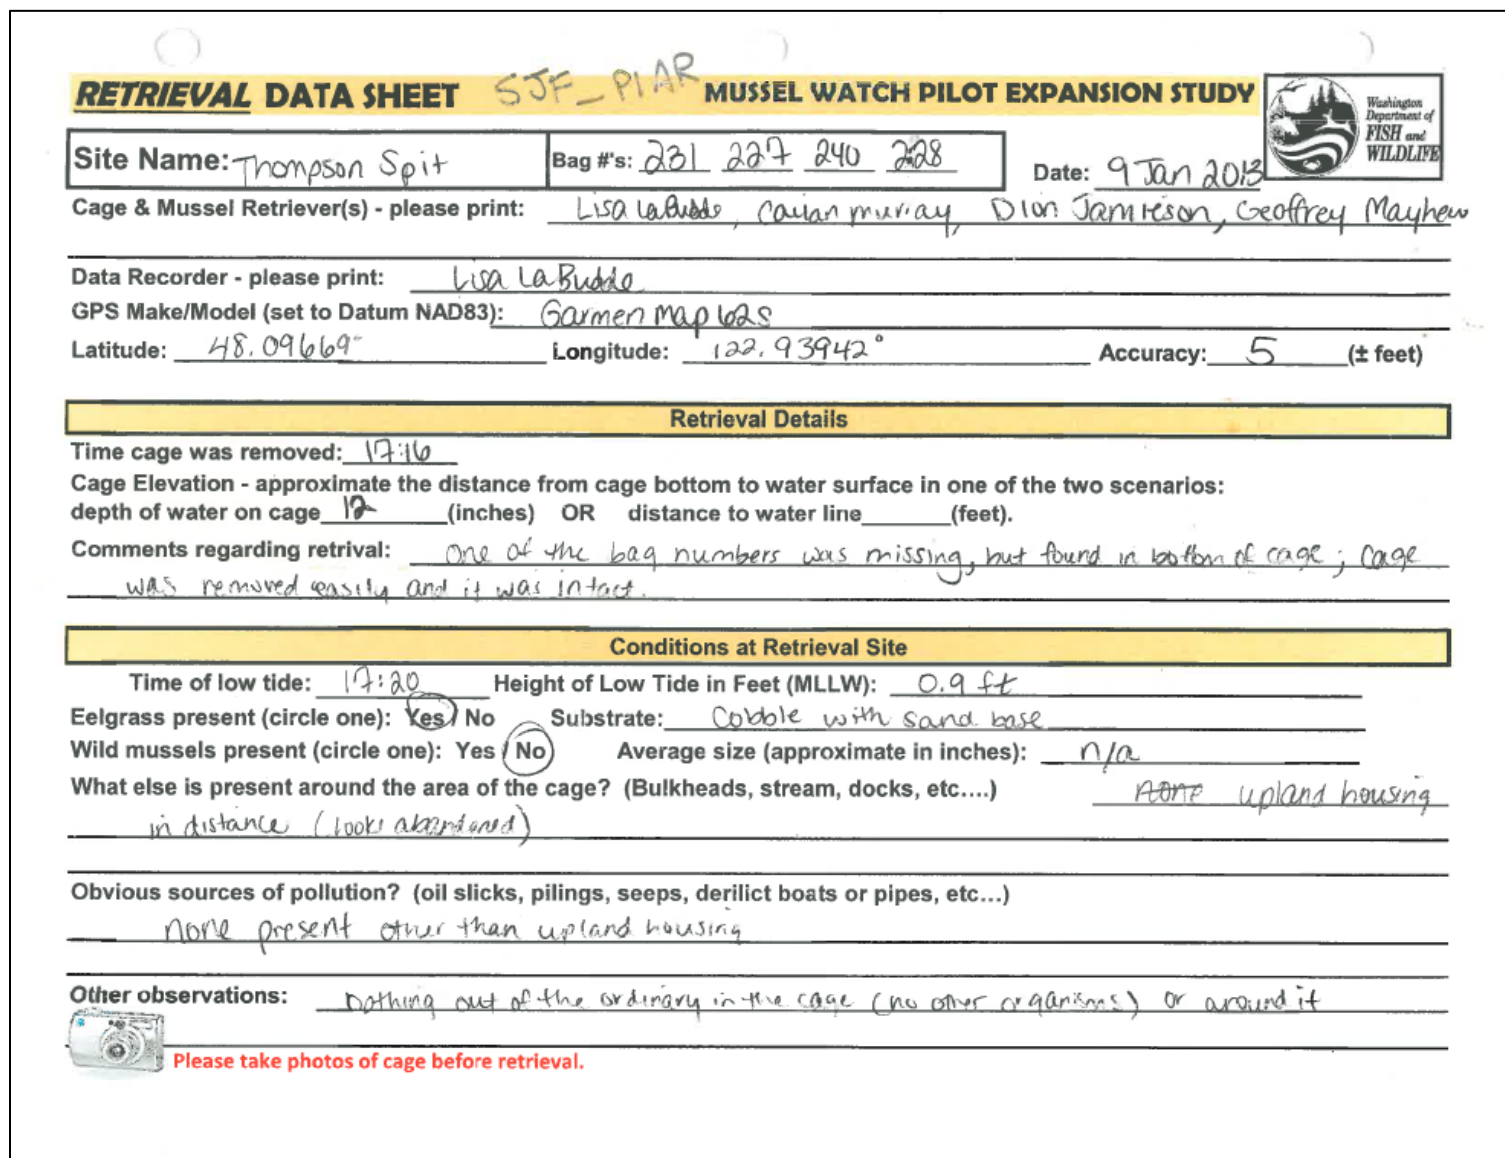 RETRIEVAL DATA SHEET SJF_PIAR MUSSEL WATCH PILOT EXPANSION STUDY
Washington
Department of
FISH and
WILDLIFE
Site Name: Thompson Spit Bag #'s: 231 227 240 228 Date: 9 Jan 2013
Cage & Mussel Retriever(s) - please print: Lisa LaBudde, murray, Dion Jamieson, Geoffrey Mayhew
Data Recorder - please print: Lisa LaBudde
GPS Make/Model (set to Datum NAD83): Garmen Map 62s
Latitude: 48.09669° Longitude: 122.93942° Accuracy: 5 (± feet)
Retrieval Details
Time cage was removed: 17:16
Cage Elevation - approximate the distance from cage bottom to water surface in one of the two scenarios:
depth of water on cage 12 (inches) OR distance to water line (feet).
Comments regarding retrival: One of the bag numbers was missing, but found in bottom of cage; cage
was removed easily and it was intact.
Conditions at Retrieval Site
Time of low tide: 17:20 Height of Low Tide in Feet (MLLW): 0.9 ft
Eelgrass present (circle one): Yes / No Substrate: Cobble with sand base
Wild mussels present (circle one): Yes / No Average size (approximate in inches): n/a
What else is present around the area of the cage? (Bulkheads, stream, docks, etc....) none upland housing
in distance (looks abandoned)
Obvious sources of pollution? (oil slicks, pilings, seeps, derilict boats or pipes, etc...)
none present other than upland housing
Other observations: nothing out of the ordinary in the cage (no other organisms) or around it
Please take photos of cage before retrieval.